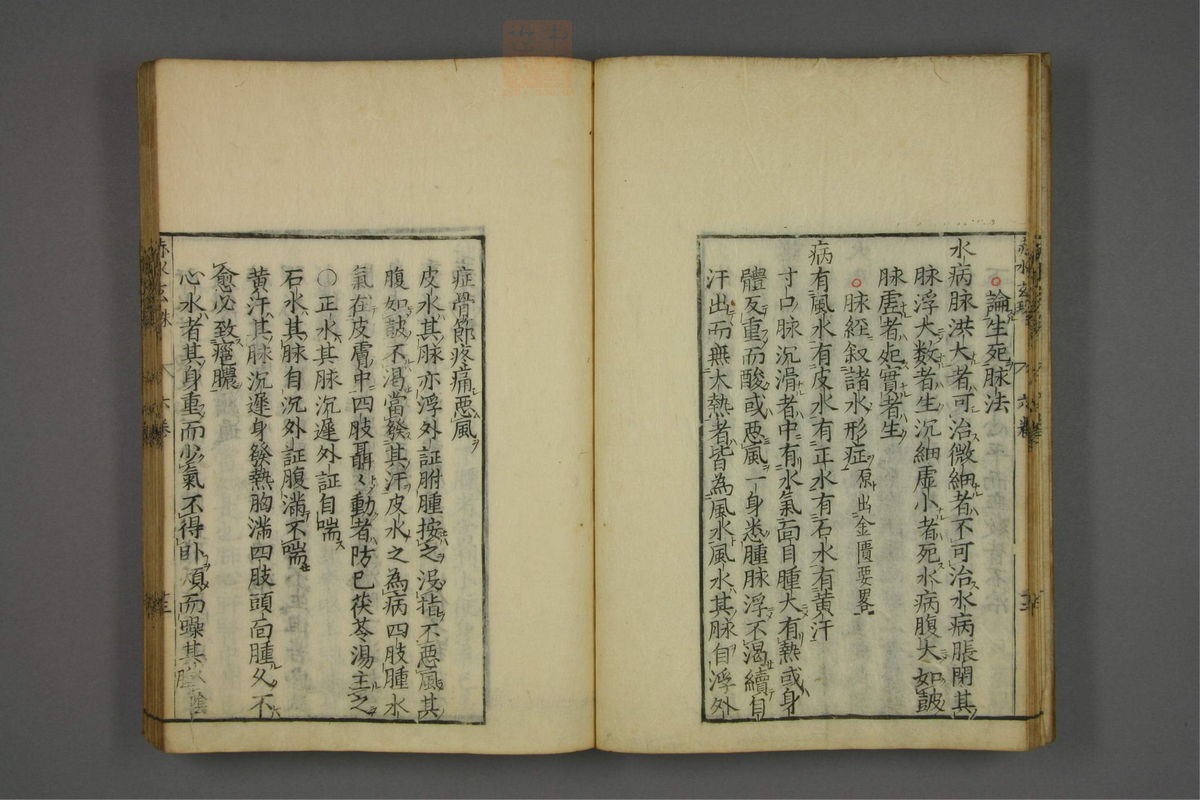 論生死脉法
水病脉洪大者可治微細者不可治水病脹閉其
脉浮大数者生沉細虚小者死水病腹大如皷
脉虚者死實者生
脉経叙諸水形症原出金匱要畧
病有風水有皮水有正水有石水有黄汗
寸口脉沉滑者中有水氣面目腫大有熱或身
體反重而酸或惡風一身悉腫脉浮不渴續自
汗出而無大熱者皆為風水風水其脉自浮外
症骨節疼痛惡風
皮水其脉亦浮外証胕腫按之没指不惡風其
腹如皷不渴當發其汗皮水之為病四肢腫水
氣在皮膚中四肢聶〻動者防已茯苓湯主之
〇正水其脉沉遲外証自喘
石水其脉自沉外証腹滿不喘
黄汗其脉沉遲身發熱胸滿四肢頭面腫久不
愈必致癰膿
心水者其身重而少氣不得卧煩而躁其陰
赤水玄珠 六卷